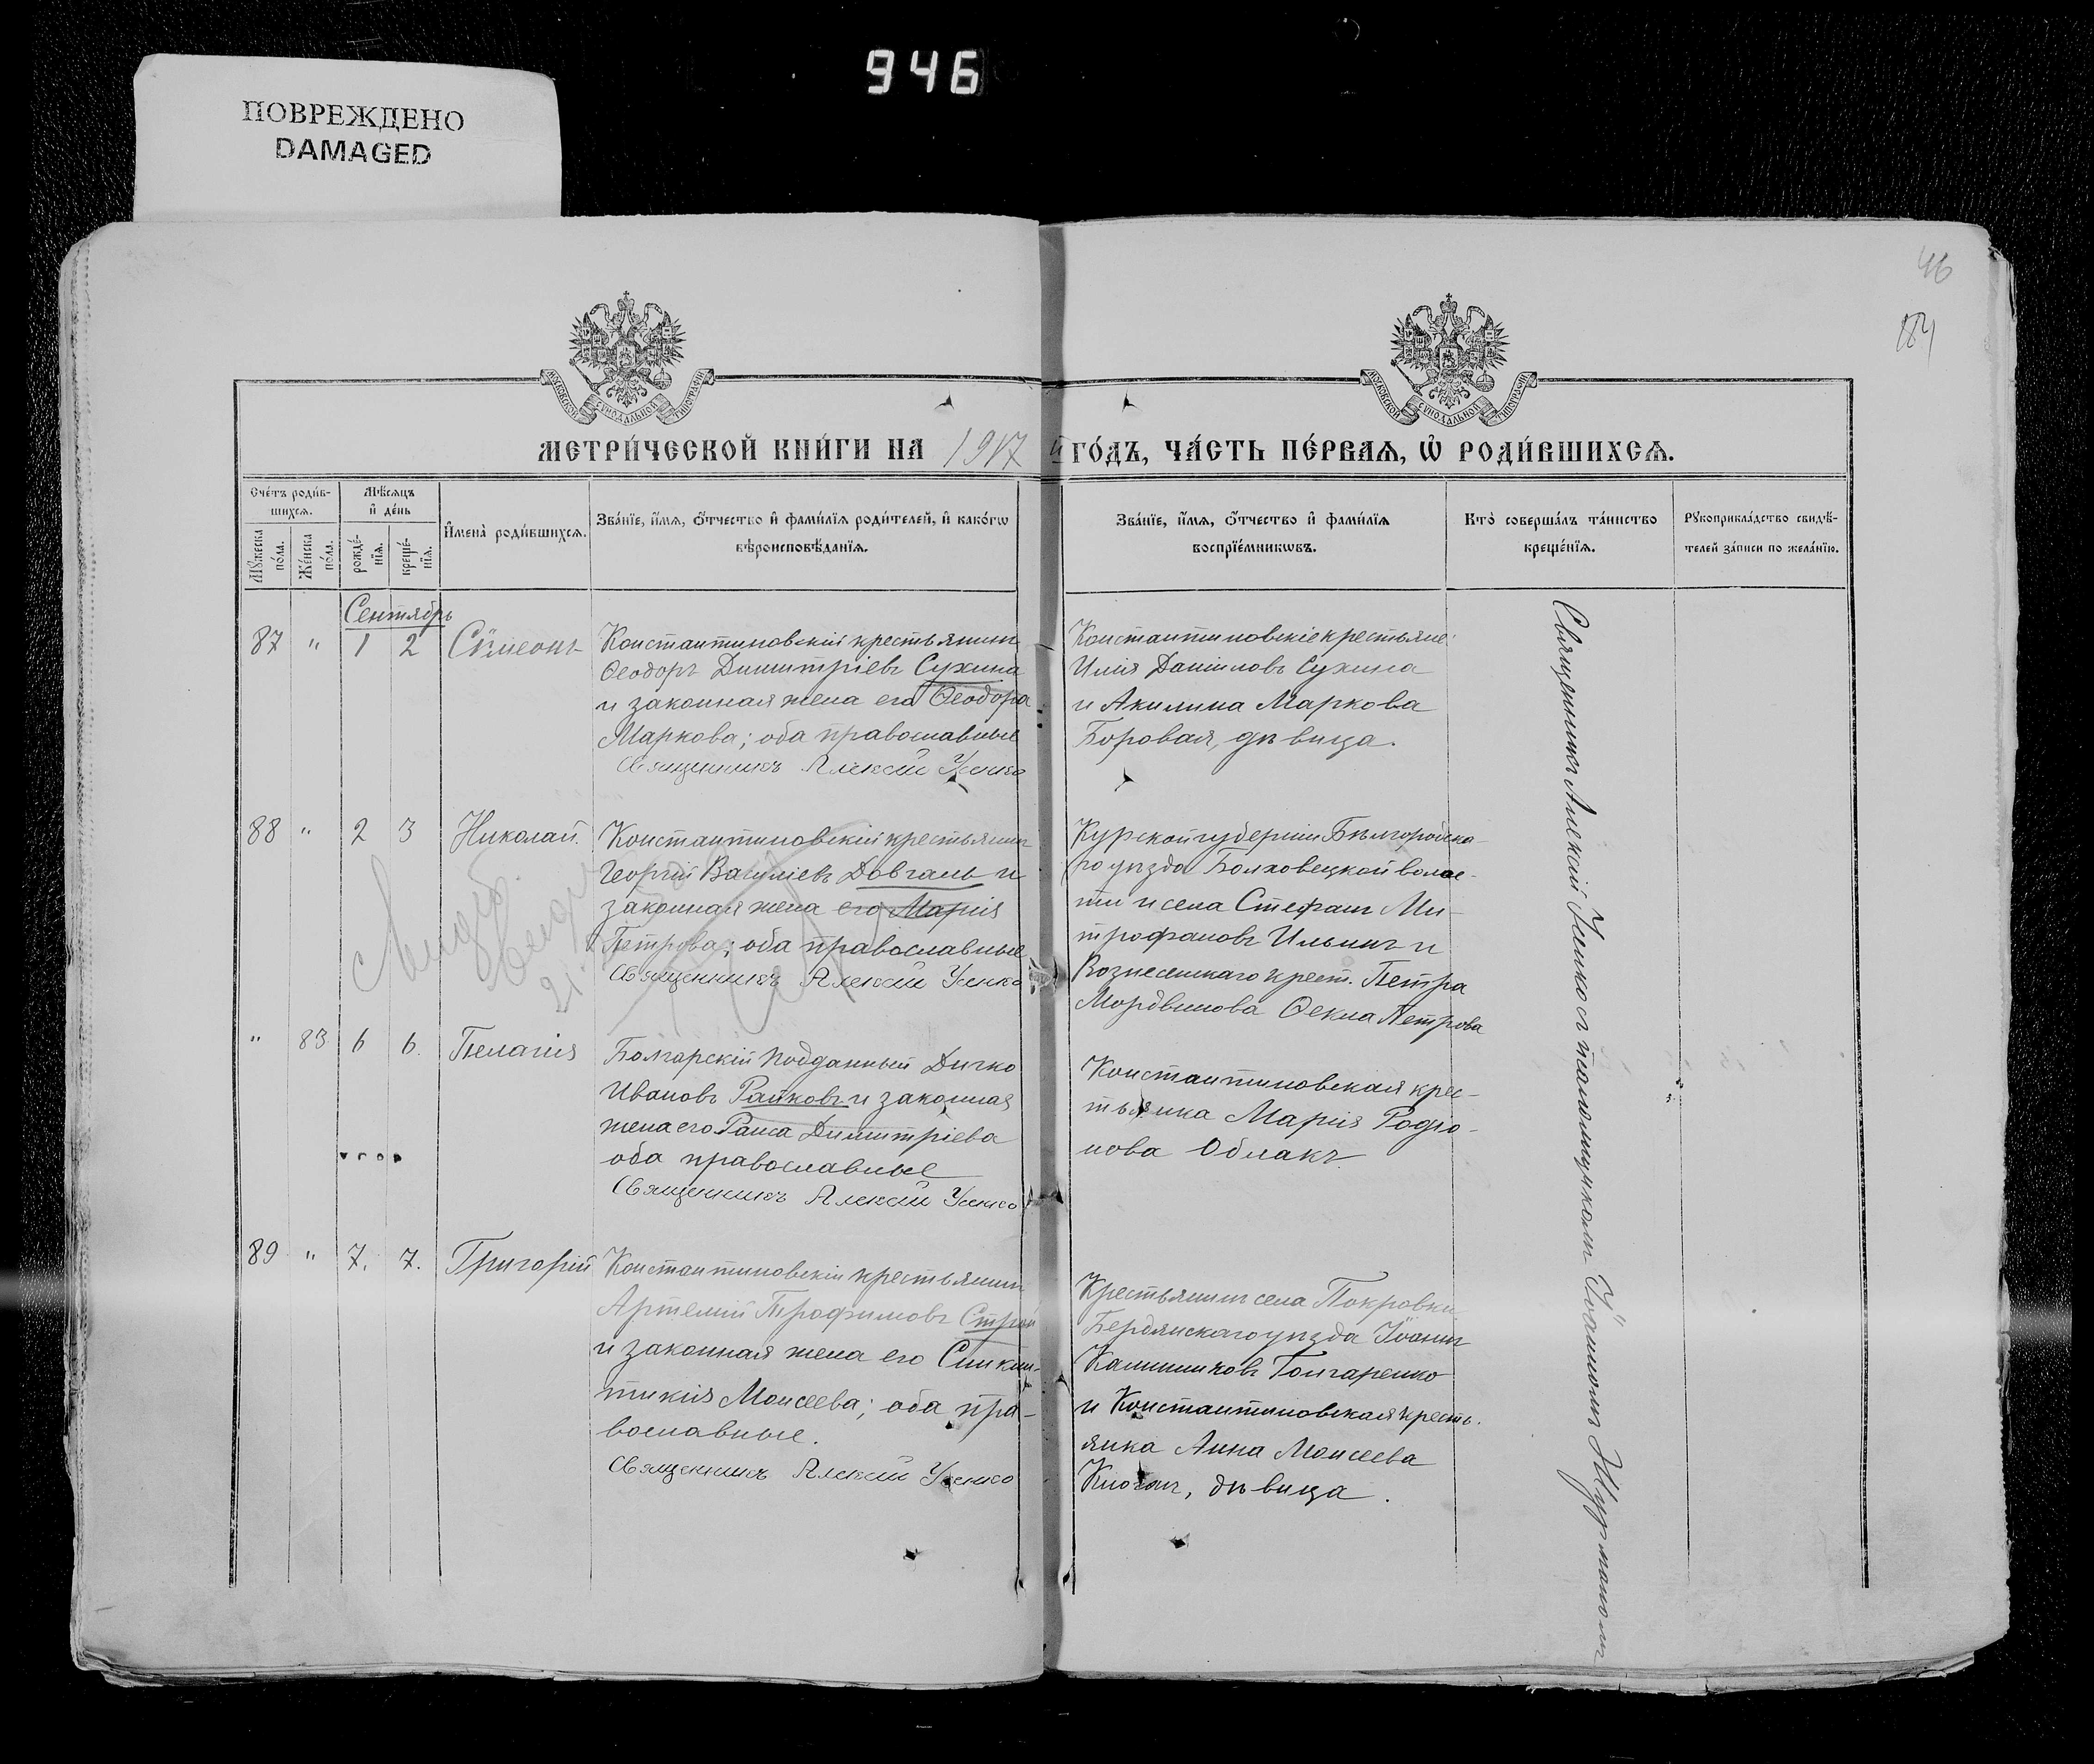 946
ПОВРЕЖДЕНО
DAMAGED
46
184
МОСКОВСКОЙ СУНОДАЛЬНОЙ ТИПОГРАФІИ
МОСКОВСКОЙ СУНОДАЛЬНОЙ ТИПОГРАФІИ
МЕТРИ́ЧЕСКОЙ КНИ́ГИ НА 1917 й ГО́ДЪ, ЧА́СТЬ ПЕ́РВАѦ, Ѡ҆ РОДИ́ВШИХСѦ.
Сче́тъ роди́в-
шихсѧ.
Мꙋ́жеска по́ла.
Же́нска по́ла.
Мѣ́сѧцъ
и҆ де́нь
рожде́-
нїѧ.
креще́-
нїѧ.
И҆мена̀ роди́вшихсѧ.
Зва́нїе, и҆́мѧ, ѻ҆́тчество и҆ фами́лїѧ роди́телей, и҆ како́гѡ
вѣроисповѣ́данїѧ.
Зва́нїе, и҆́мѧ, ѻ҆́тчество и҆ фами́лїѧ
воспрїе́мникѡвъ.
Кто̀ соверша́лъ та́инство
креще́нїѧ.
Рꙋкоприкла́дство свидѣ́-
телей за́писи по жела́нїю.
Сентябрь
87 " 1 2 Сѵмеонъ
Константиновскій крестьянинъ
Ѳеодоръ Димитріевъ Сухина
и законная жена его Ѳеодора
Маркова; оба православные
Священникъ Алексій Усенко
Константиновскіе крестьяне:
Илія Даніиловъ Сухина
и Акилина Маркова
Боровая, дѣвица.
88 " 2 3 Николай.
Константиновскій крестьянинъ
Георгій Василіевъ Довгаль и
законная жена его Марія
Петрова; оба православные
Священникъ Алексій Усенко
Курской губерніи Бѣлгородска-
го уѣзда Болховецкой волос-
ти и села Стефанъ Ми-
трофановъ Ильинъ и
Вознесенскаго крест. Петра
Мордвинова Ѳекла Петрова
" 83 6 6. Пелагія
Болгарскій подданный Дичко
Ивановъ Райковъ и законная
жена его Раиса Димитріева
оба православные
Священникъ Алексій Усенко
Константиновская крес-
тьянка Марія Родіо-
нова Облакъ
89 " 7. 7. Григорій
Константиновскій крестьянинъ
Артемій Трофимовъ Строй
и законная жена его Синкли-
тикія Моисеева; оба пра-
вославные.
Священникъ Алексій Усенко
Крестьянинъ села Покровки
Бердянскаго уѣзда Іоаннъ
Калинниковъ Гончаренко
и Константиновская кресть-
янка Анна Моисеева
дѣвица.
Священникъ Алексій Усенко съ псаломщикомъ Іоанномъ